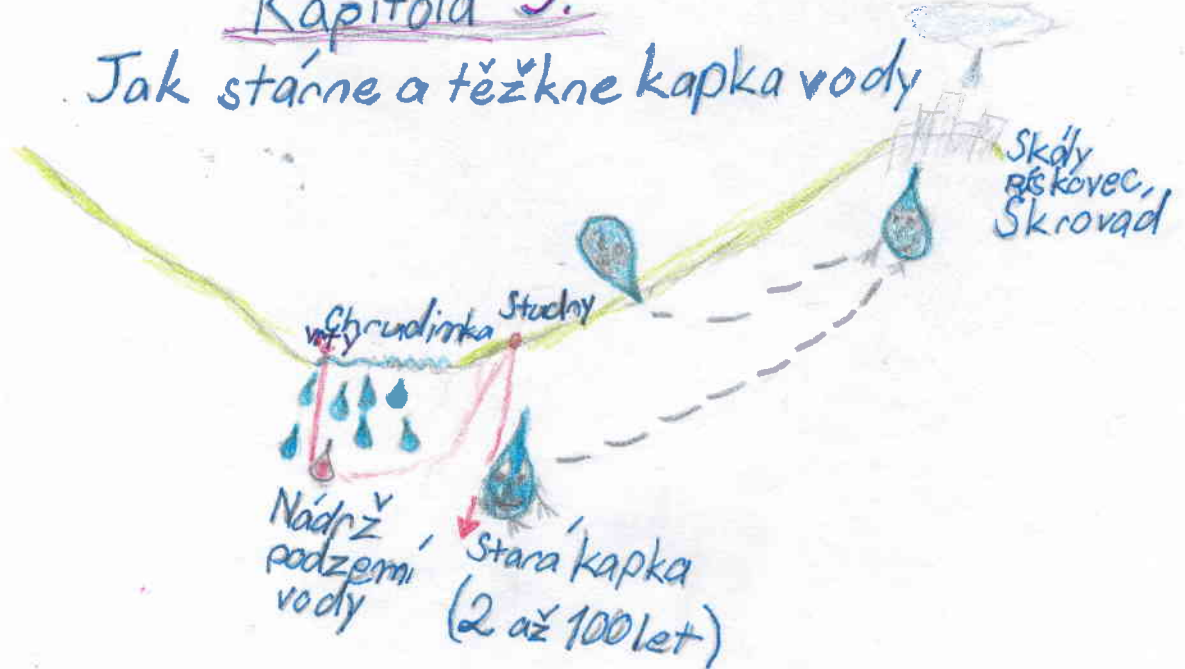 Kapitola 3.
Jak stárne a těžkne kapka vody
Skály
pískovec,
Škrovád
Studny
Chrudimka
vrty
Nádrž
podzemní
vody
Stará kapka
(2 až 100 let)